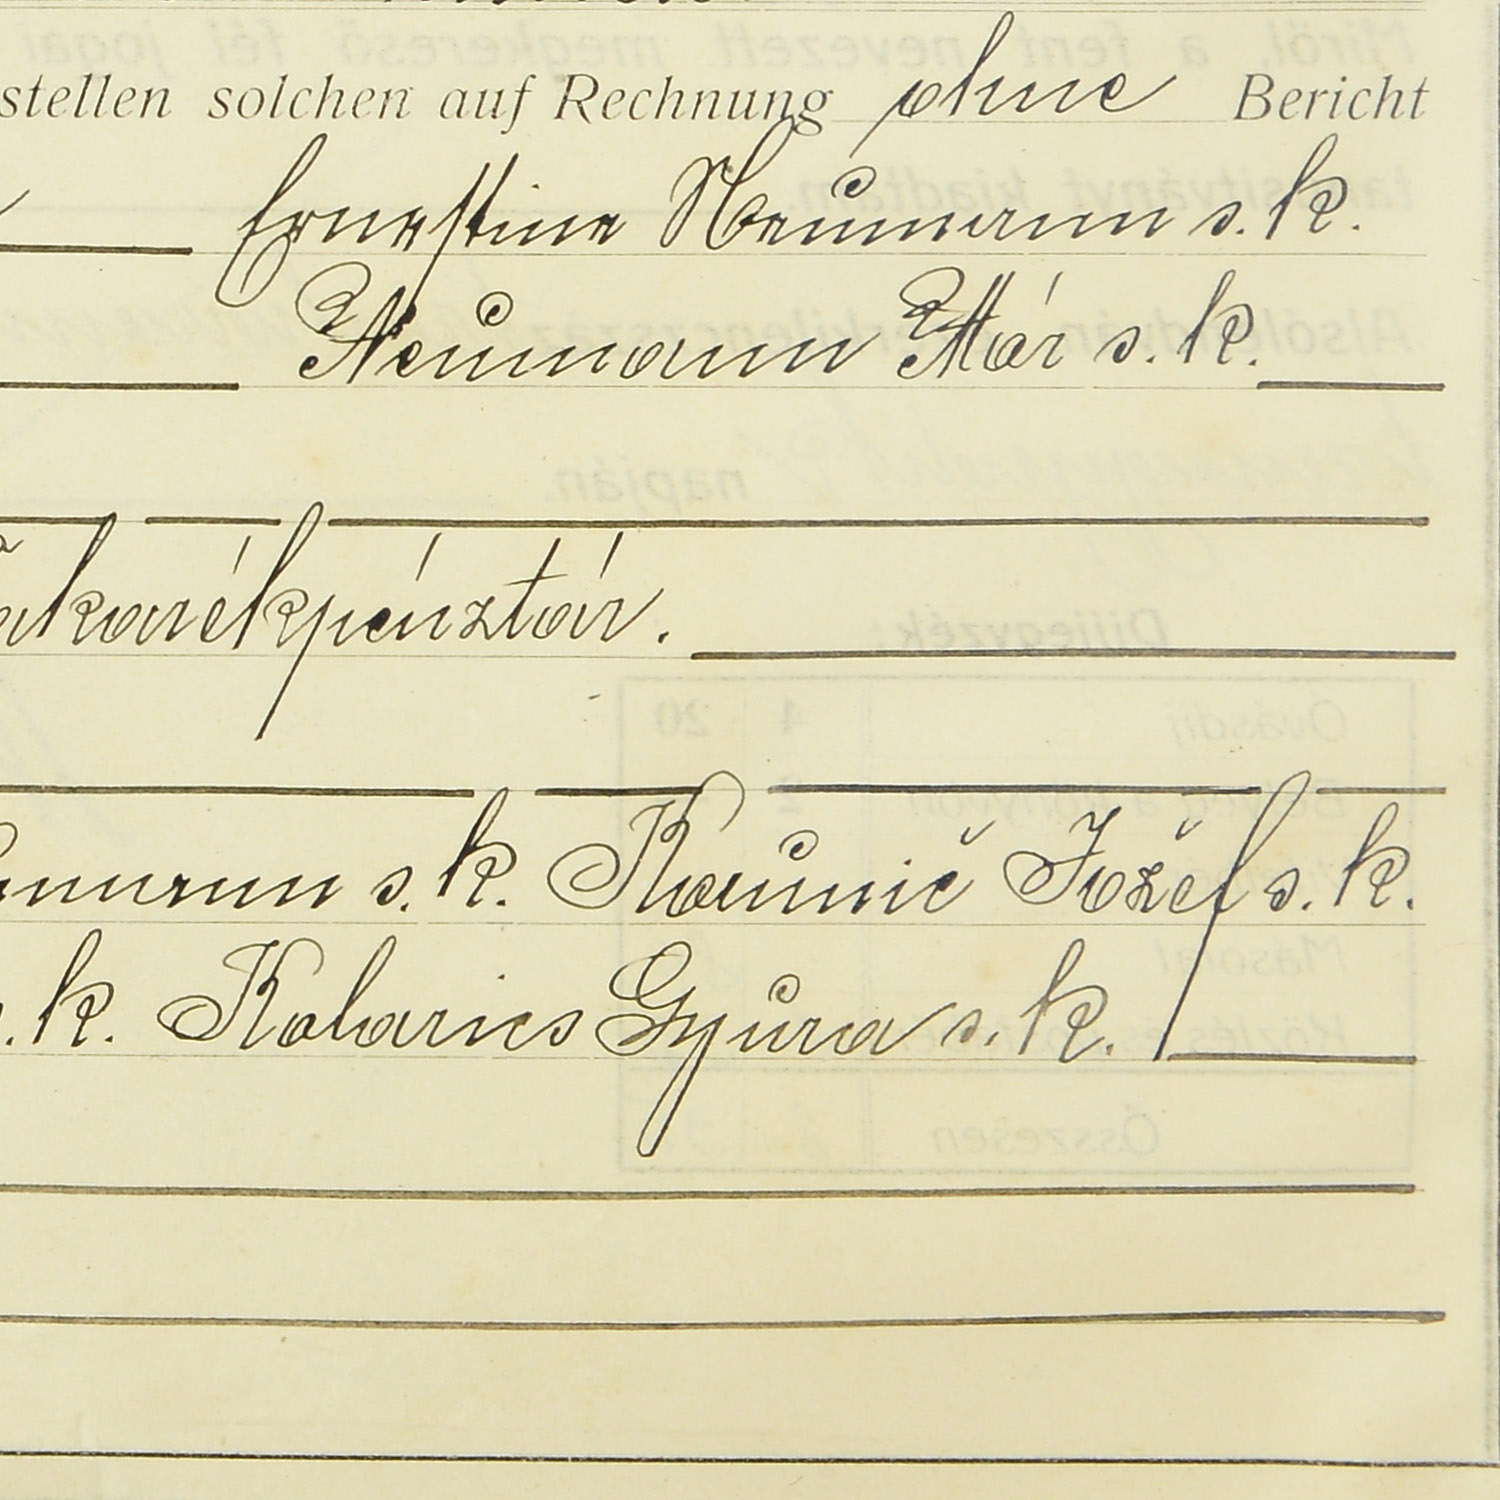 stellen solchen auf Rechnung ohne Bericht
Ernestine Neumann s. k.
Neumann Mór s. k.
akarékpénztár.
umann s. k. Kaunič Jožef s. k.
s. k. Kolarics Gyura s. k.